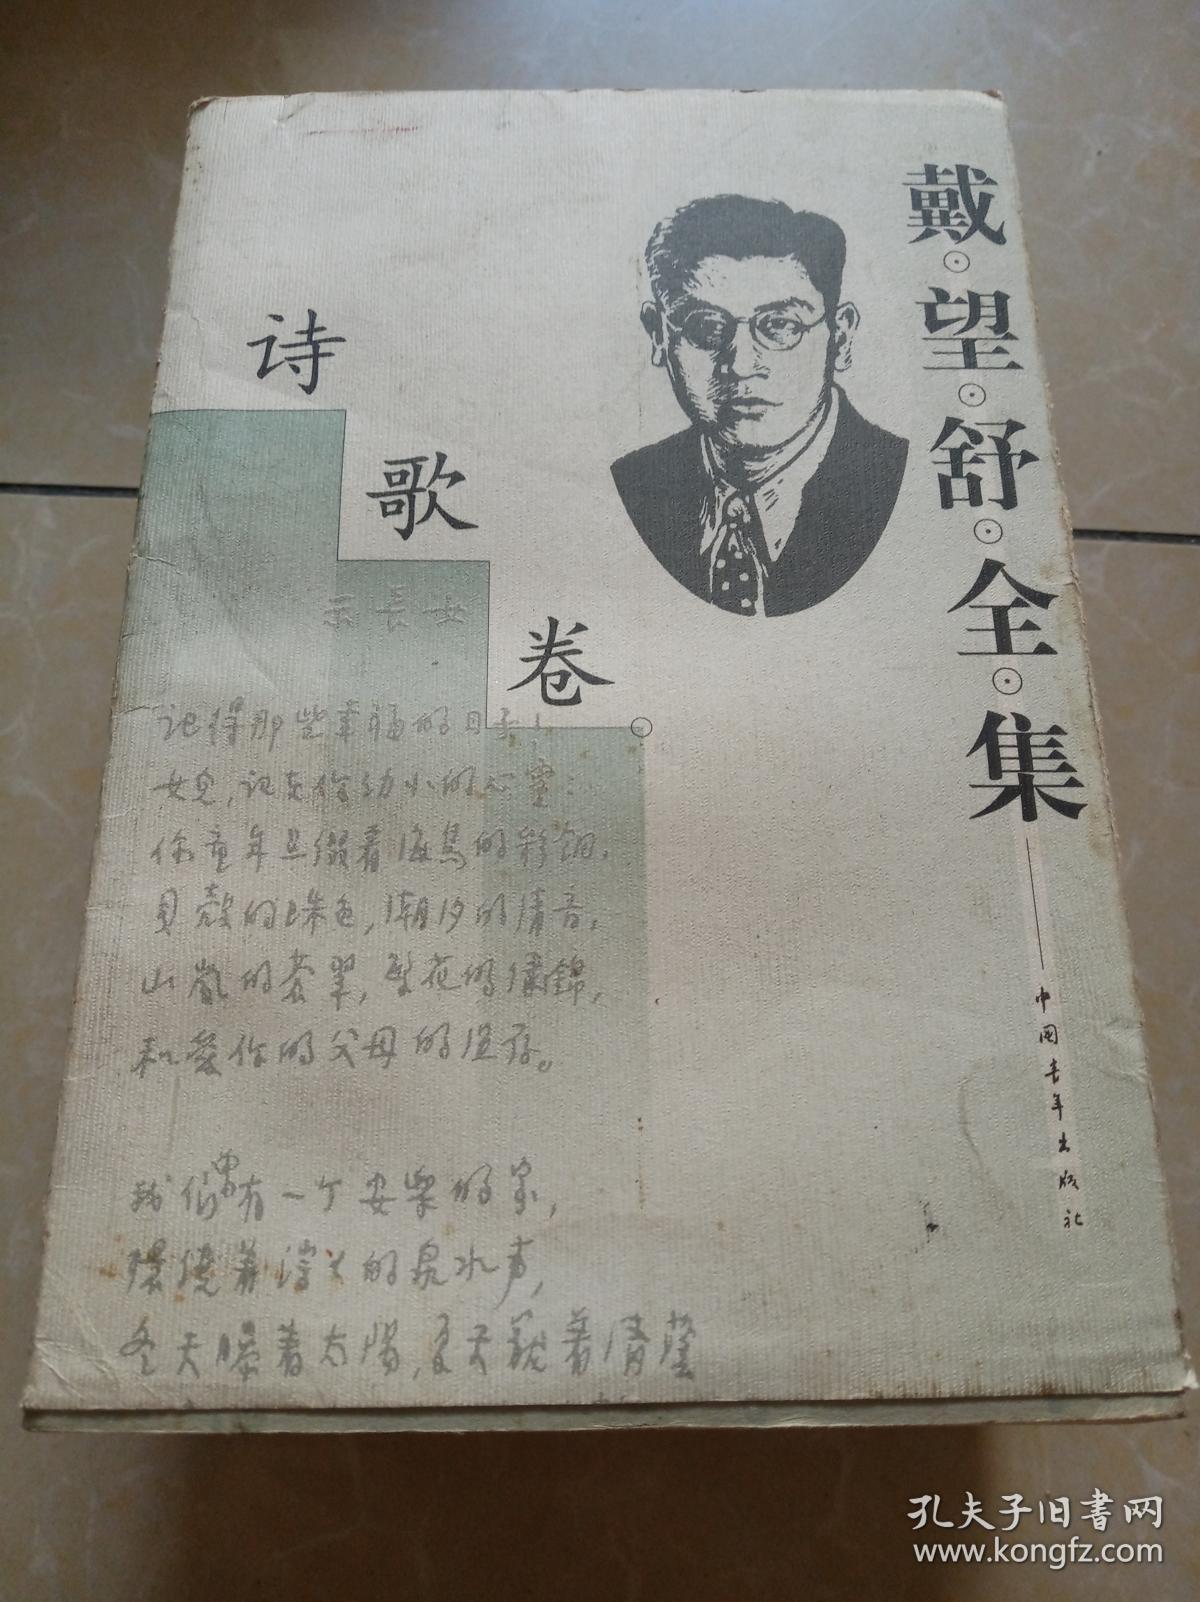 戴·望·舒·全·集
——中国青年出版社
诗歌卷。
示長女
记得那些幸福的日子！
女兒，记在你幼小的心靈：
你童年点缀着海鳥的彩翎，
貝殼的珠色，潮汐的清音，
山嵐的蒼翠，繁花的繡錦，
和愛你的父母的温存。
我们曾有一个安樂的家，
環绕着淙々的泉水声，
冬天曝着太陽，夏天
孔夫子旧书网
www.kongfz.com